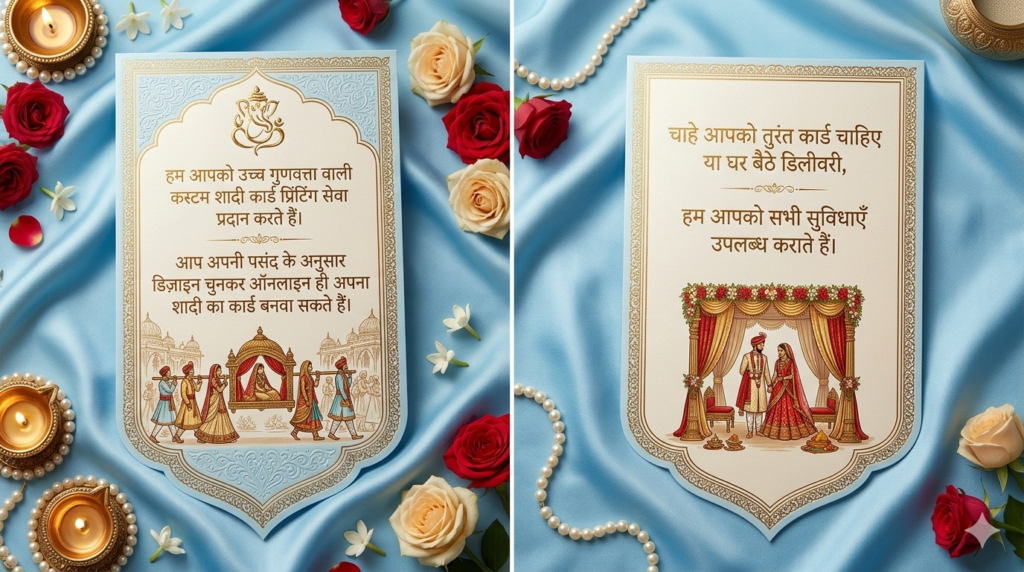 हम आपको उच्च गुणवत्ता वाली
कस्टम शादी कार्ड प्रिंटिंग सेवा
प्रदान करते हैं।
आप अपनी पसंद के अनुसार
डिज़ाइन चुनकर ऑनलाइन ही अपना
शादी का कार्ड बनवा सकते हैं।
चाहे आपको तुरंत कार्ड चाहिए
या घर बैठे डिलीवरी,
हम आपको सभी सुविधाएँ
उपलब्ध कराते हैं।